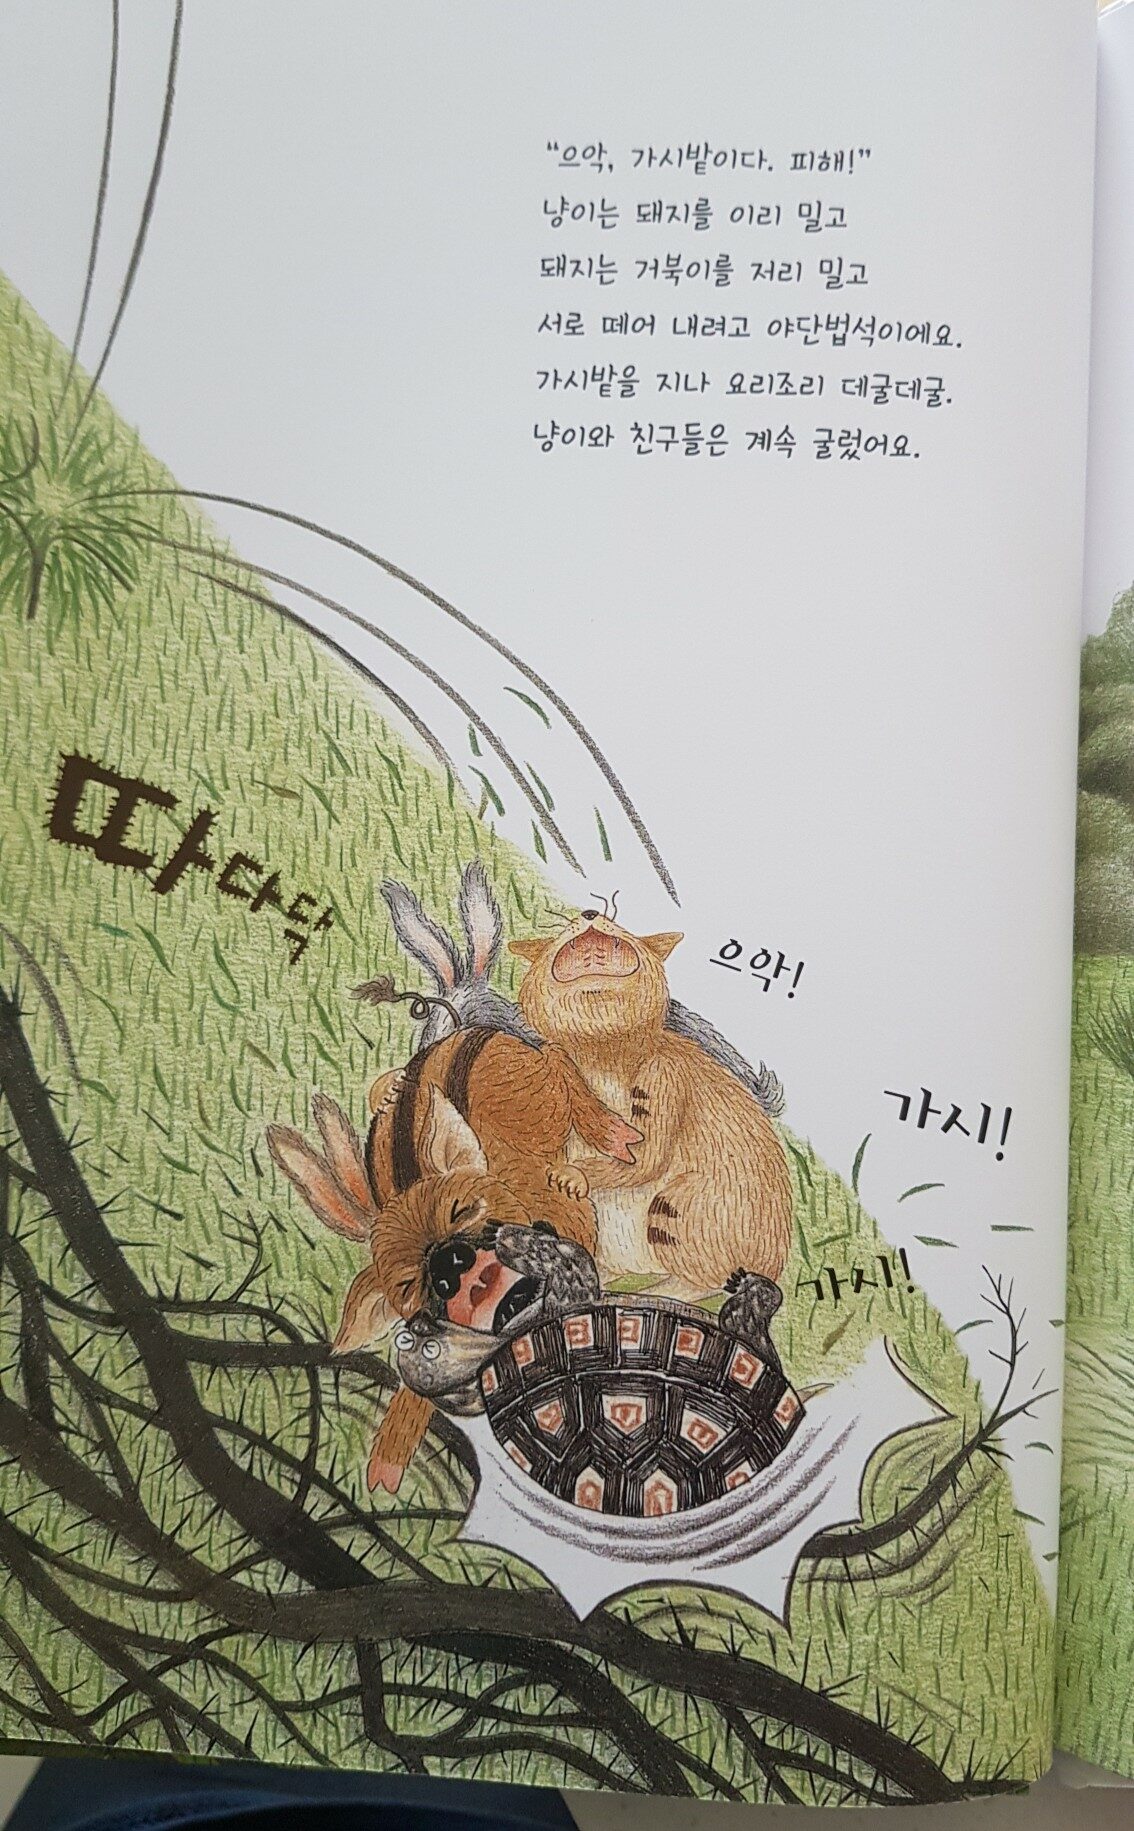 “으악, 가시밭이다. 피해!”
냥이는 돼지를 이리 밀고
돼지는 거북이를 저리 밀고
서로 떼어 내려고 야단법석이에요.
가시밭을 지나 요리조리 데굴데굴.
냥이와 친구들은 계속 굴렀어요.
따다닥
으악!
가시!
가시!